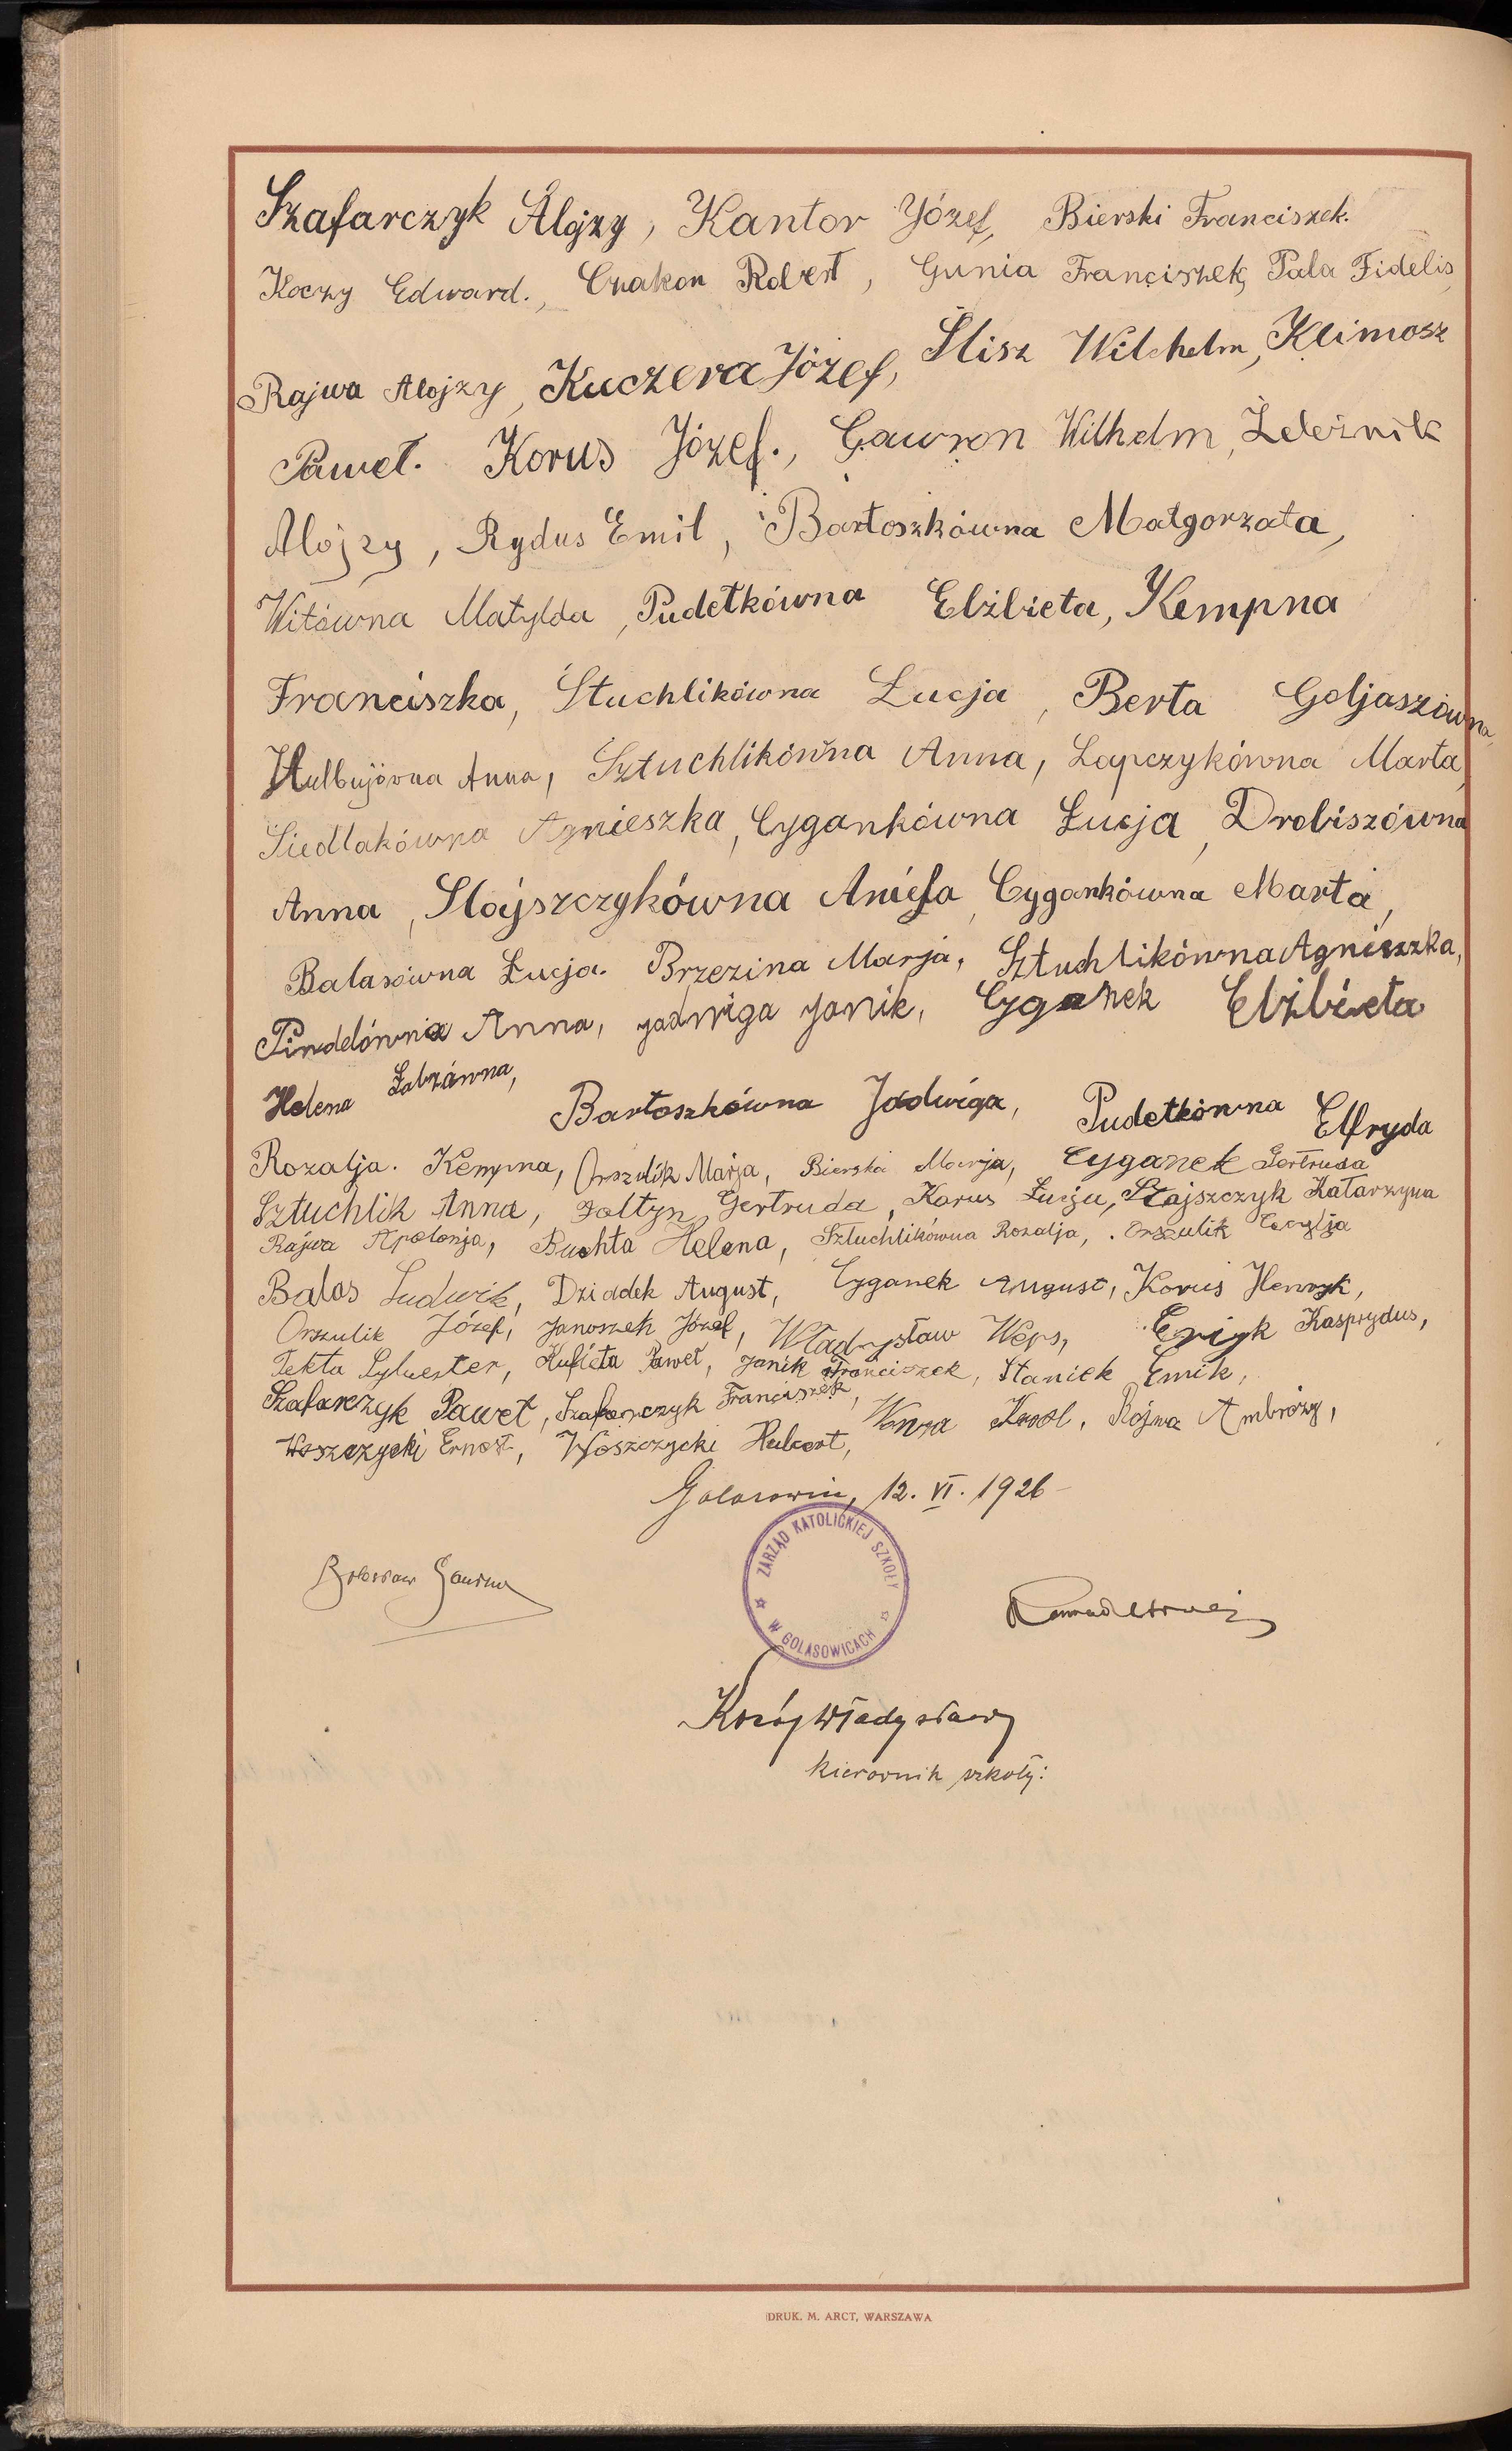 Szafarczyk Alojzy, Kantor Józef, Bierski Franciszek.
Koczy Edward., Czakon Robert, Gunia Franciszek, Pala Fidelis,
Rajwa Alojzy, Kuczera Józef, Ślisz Wilchelm, Klimosz
Paweł. Korus Józef., Gawron Wilhelm, Żeleźnik
Alojzy, Rydus Emil, Bartoszkówna Małgorzata,
Witówna Matylda, Pudełkówna Elżbieta, Kempna
Franciszka, Stuchlikówna Łucja, Berta Goljaszówna,
Anna, Sztuchlikówna Anna, Lapczykówna Marta,
Siedlakówna Agnieszka, Cygankówna Łucja, Drobiszówna
Anna, Stajszczykówna Aniela, Cygankówna Marta,
Balasówna Łucja. Brzezina Marja, Sztuchlikówna Agnieszka,
Pindelówna Anna, Jadwiga Janik, Cyganek Elżbieta
Helena Żabzówna,
Bartoszkówna Jadwiga, Pudełkówna Elfryda
Rozalja. Kempna, Orszulik Marja, Bierska Marja, Cyganek Gertruda
Sztuchlik Anna, Foltyn Gertruda, Korus Łucja, Stajszczyk Katarzyna
Rajwa Apolonja, Buchta Helena, Sztuchlikówna Rozalja, Orszulik Cecylja
Balas Ludwik, Dziadek August, Cyganek August, Korus Henryk,
Orszulik Józef, Janoszek Józef, Władysław Weps, Eryk Kasprydus,
Tekla Sylwester, Kufieta Paweł, Janik Franciszek, Staniek Emil,
Szafarczyk Paweł, Szafarczyk Franciszek, Karol, Rajwa Ambroży,
Woszczycki Ernest, Woszczycki Hubert,
12. VI. 1926
ZARZĄD KATOLICKIEJ SZKOŁY W GOLASOWICACH
Władysław
kierownik szkoły:
DRUK. M. ARCT, WARSZAWA